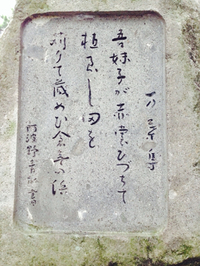 万葉集
吾妹子が赤裳ひづちて
植ゑし田を
刈りて蔵めむ倉無の浜
阿波野青畝書